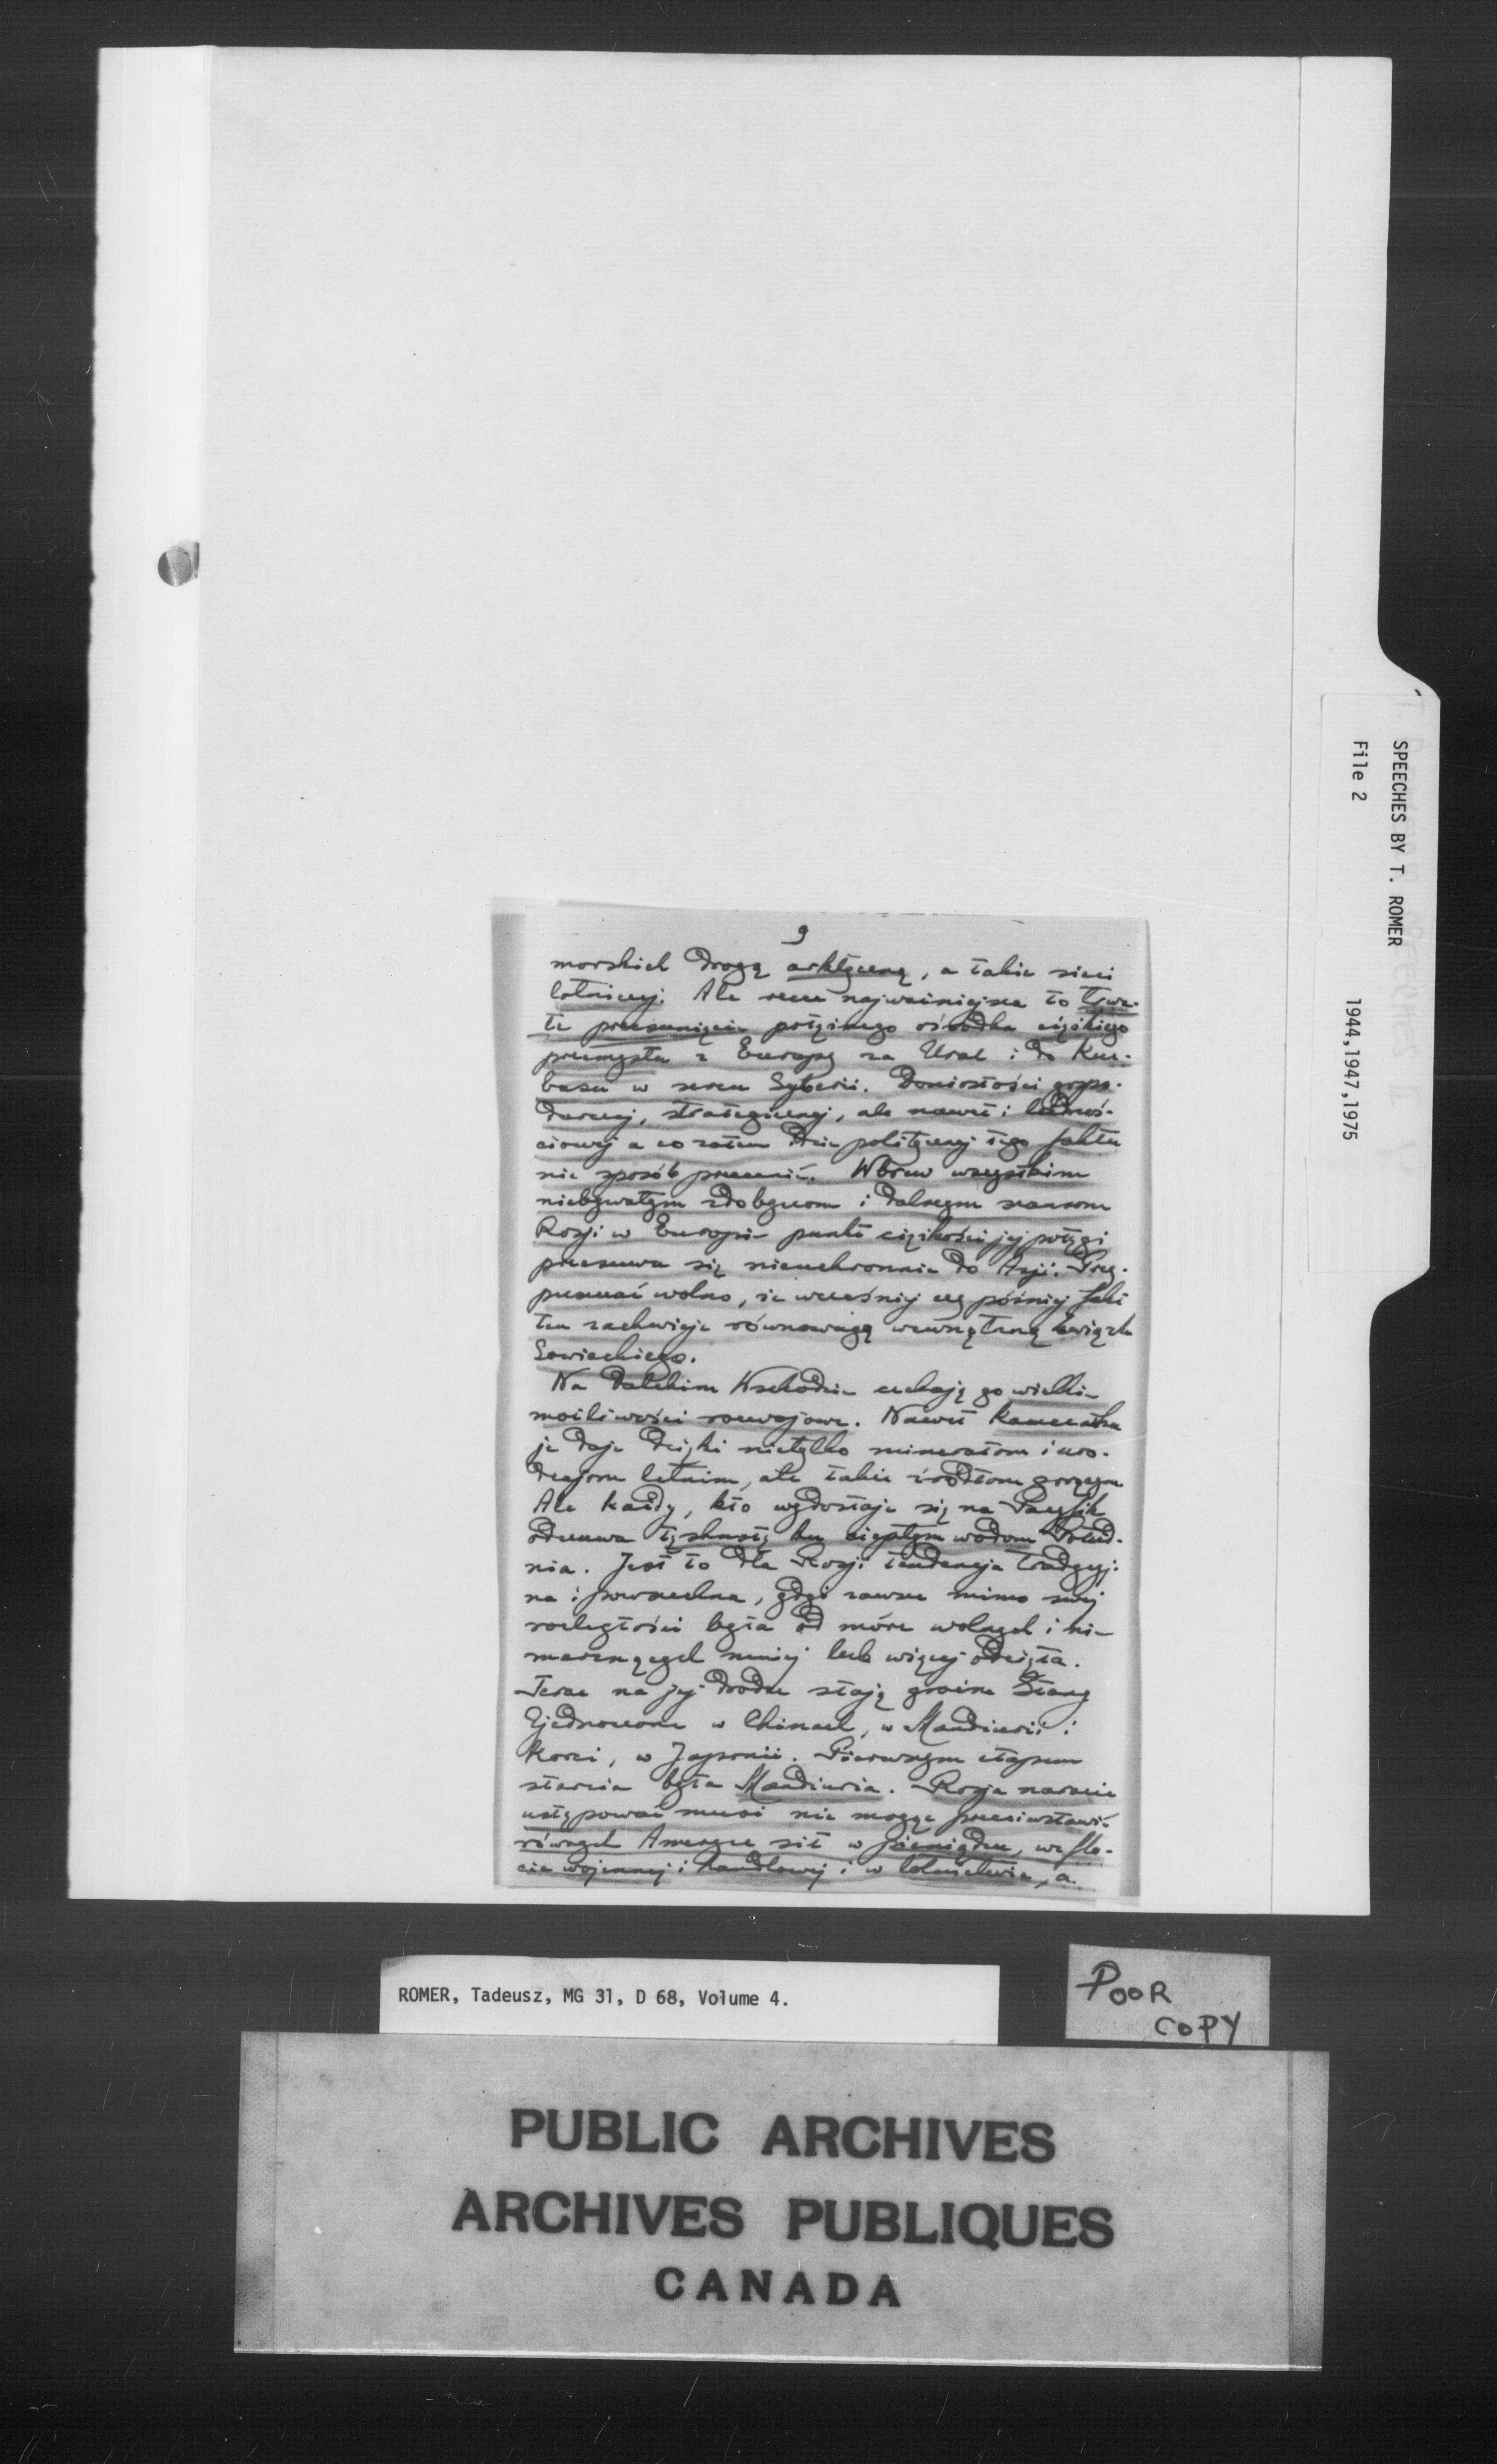 9
morskich drogą arktyczną, a także sieci
lotniczej. Ale rzecz najważniejsza to trwa-
łe przesunięcie potężnego ośrodka ciężkiego
przemysłu z Europy za Ural i do Kuz-
basu w sercu Syberii. Doniosłości gospo-
darczej, strategicznej, ale nawet i ludnoś-
ciowej a co zatem idzie politycznej tego faktu
nie sposób przecenić. Wbrew wszystkim
niebywałym zdobyczom i dalszym szansom
Rosji w Europie punkt ciężkości jej potęgi
przesuwa się nieuchronnie do Azji. Przy-
puszczać wolno, że wcześniej czy później fakt
ten zachwieje równowagę wewnętrzną Związku
Sowieckiego.
Na Dalekim Wschodzie czekają go wielkie
możliwości rozwojowe. Nawet Kamczatka
je daje dzięki nietylko minerałom i uro-
dzajom letnim, ale także źródłom gorącym
Ale każdy, kto wydostaje się na Pacyfik
odczuwa tęsknotę ku ciepłym wodom Połud-
nia. Jest to dla Rosji tendencja tradycyj-
na i powszechna, gdyż zawsze mimo swej
rozległości była od mórz wolnych i nie-
marznących mniej lub więcej odcięta.
Teraz na jej drodze stają groźne Stany
Zjednoczone w Chinach, w Mandżurii i
Korei, w Japonii. Pierwszym etapem
starcia była Mandżuria. Rosja narazie
ustępować musi nie mogąc przeciwstawić
równych Ameryce sił w pieniądzu, we flo-
cie wojennej i handlowej i w lotnictwie, a
SPEECHES BY T. ROMER
File 2 1944,1947,1975
ROMER, Tadeusz, MG 31, D 68, Volume 4.
POOR
COPY
PUBLIC ARCHIVES
ARCHIVES PUBLIQUES
CANADA